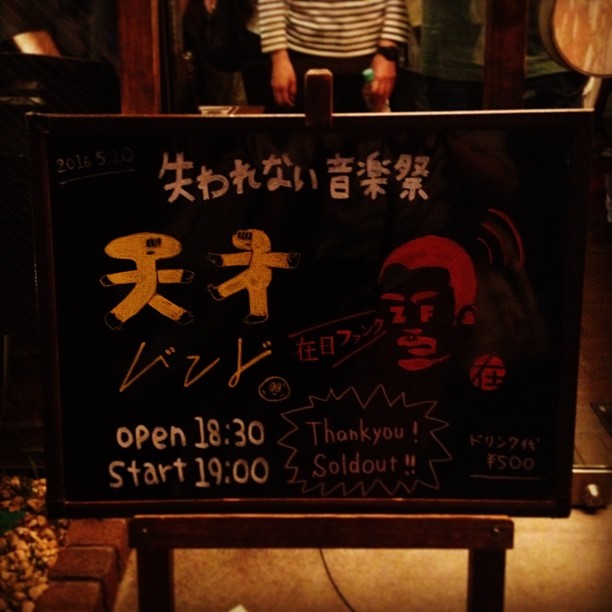 2016.5.20
失われない音楽祭
天才
バンド
在日ファンク
在
open 18:30
start 19:00
Thankyou!
Soldout!!
ドリンク代
¥500